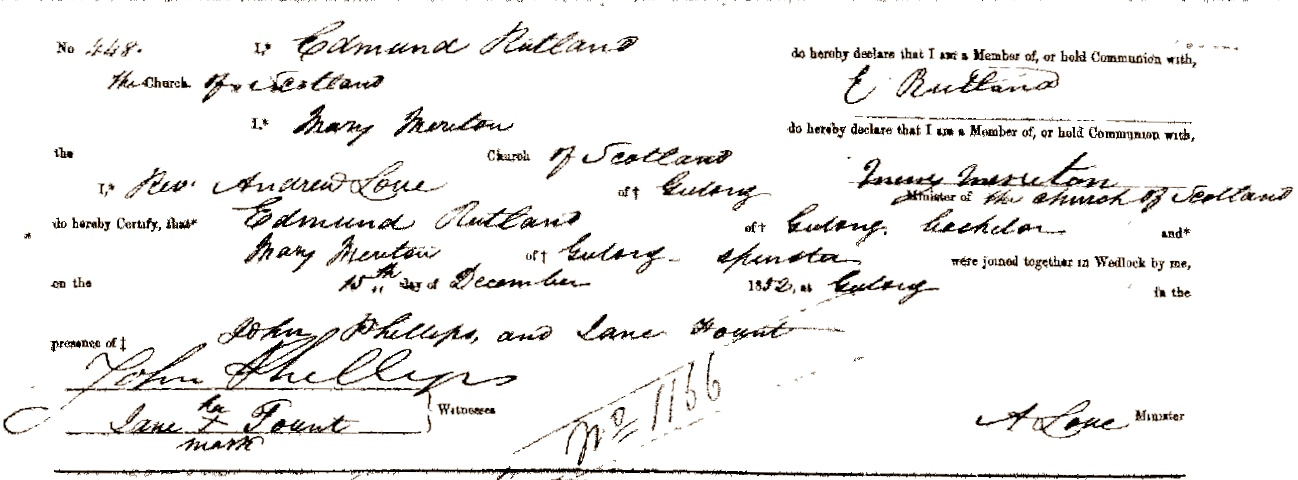 No 448. I,* Edmund Rutland do hereby declare that I am a Member of, or hold Communion with,
the Church of Scotland E Rutland
I,* Mary Mereton do hereby declare that I am a Member of, or hold Communion with,
the Church of Scotland Mary Mereton
I,* Rev. Andrew Love of† Gelong Minister of the church of Scotland
do hereby Certify, that* Edmund Rutland of† Gelong. bachelor and*
Mary Mereton of† Gelong spinster were joined together in Wedlock by me,
on the 15th day of December 1852, at Gelong in the
presence of‡ John Phillips, and Jane Fount
John Phillips
Jane her x Fount Witnesses
mark
No 1166
A Love Minister